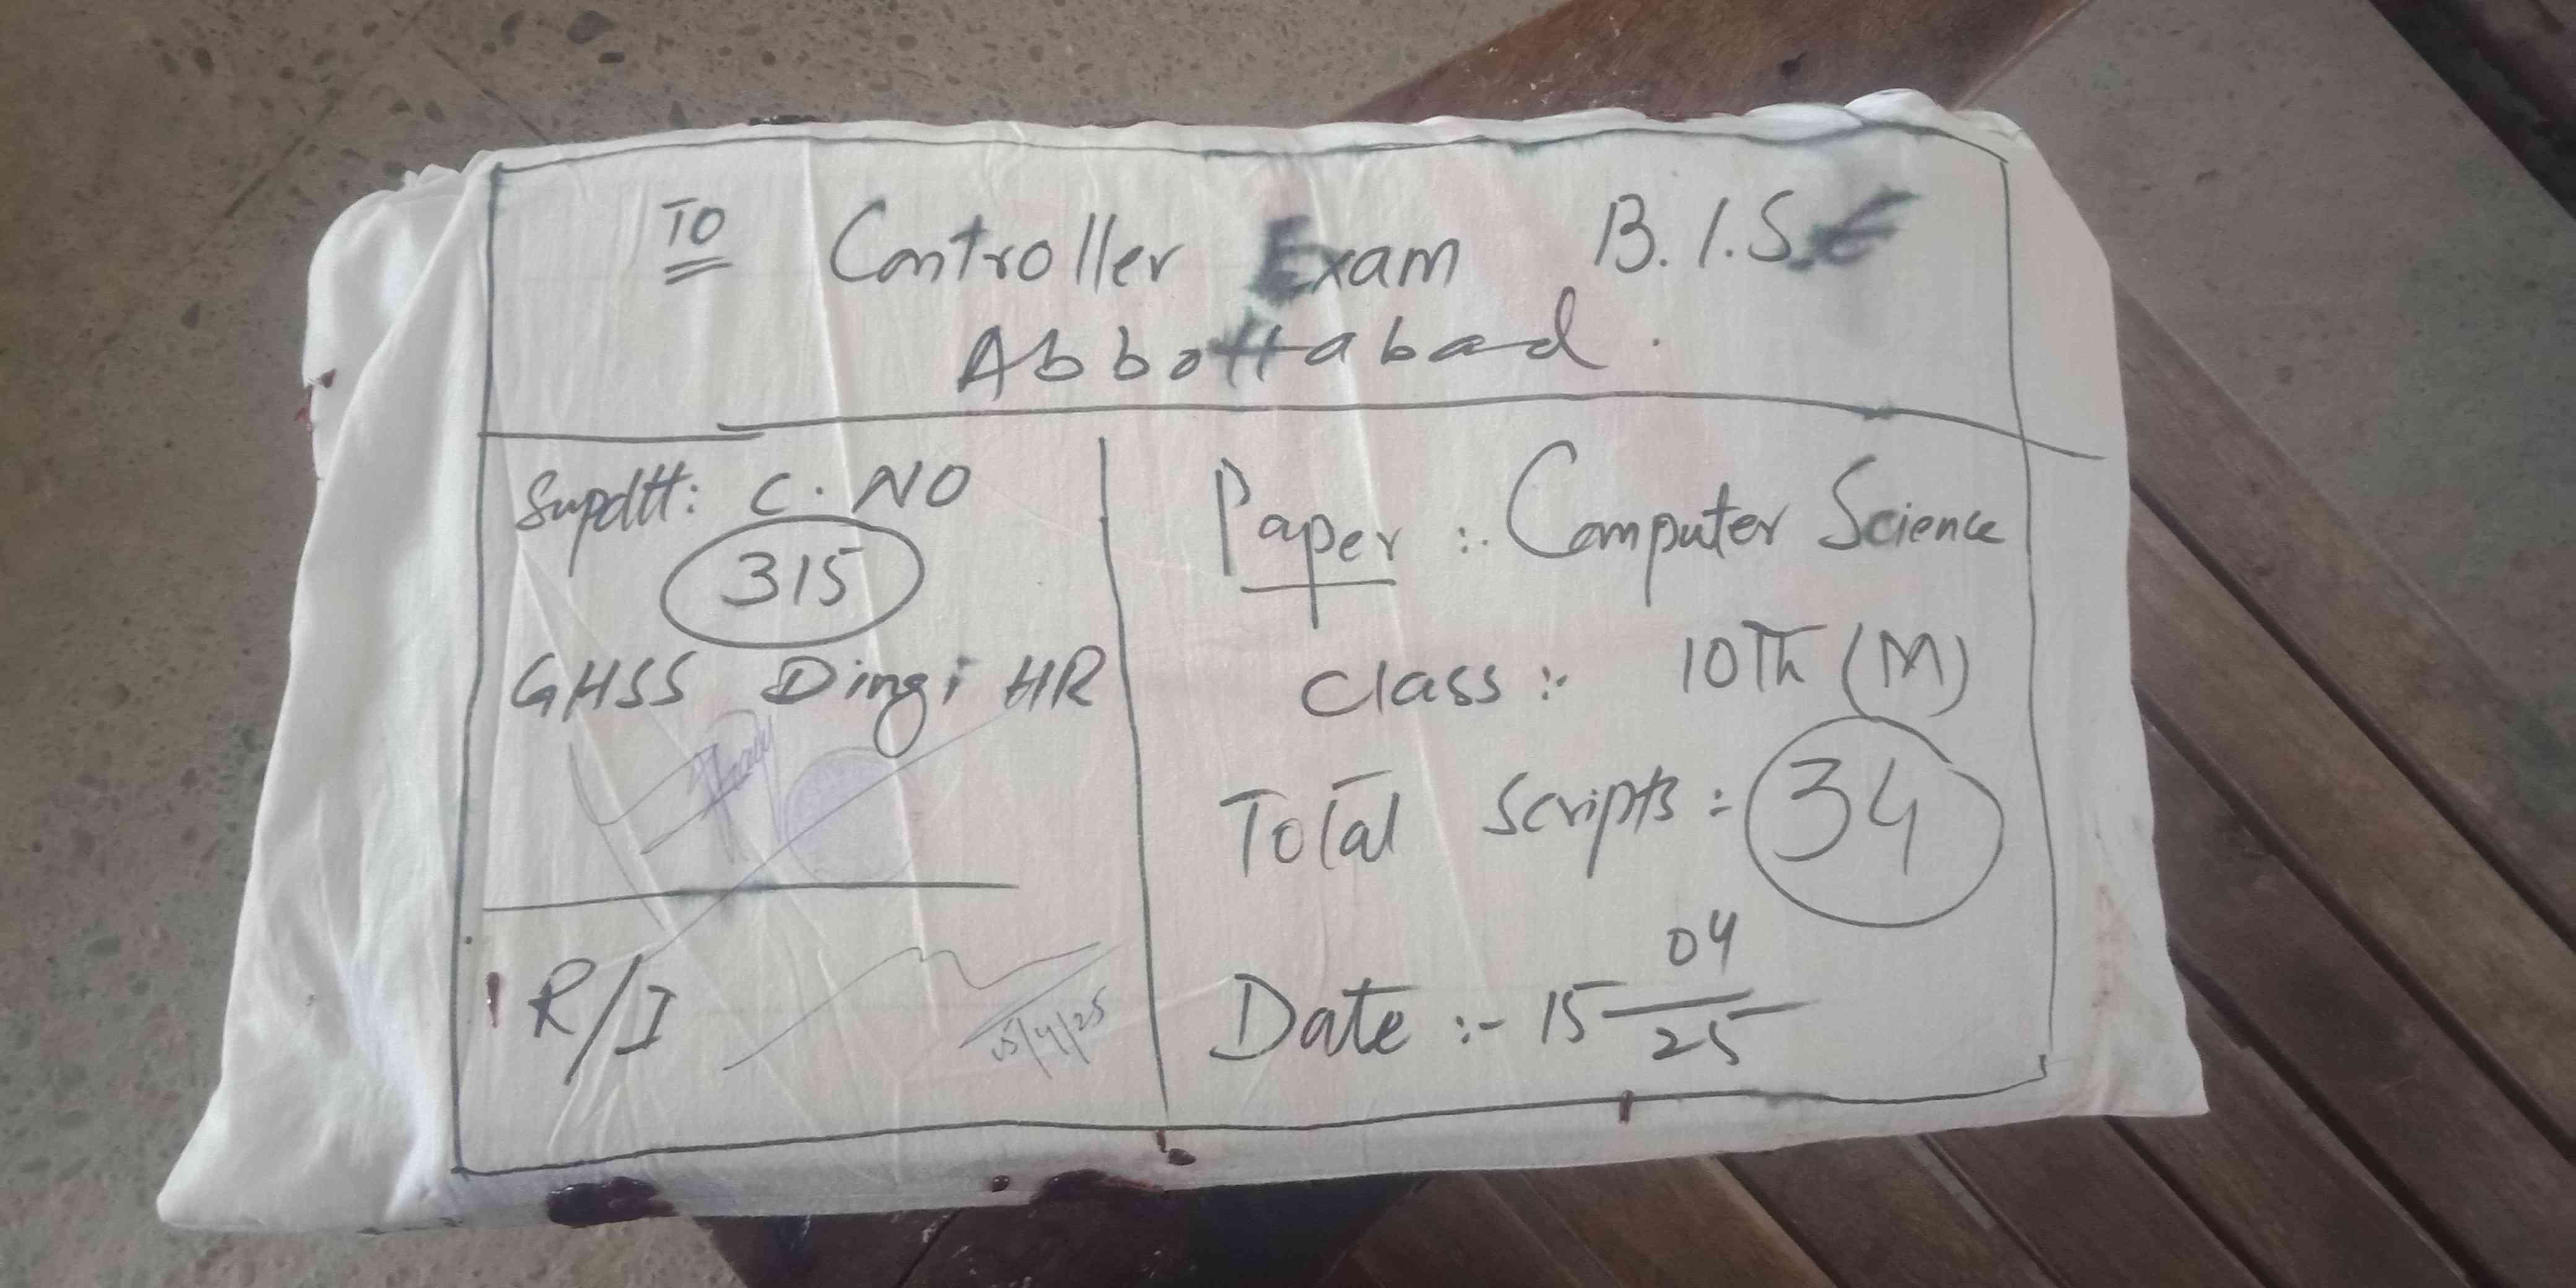 TO Controller Exam B.I.S.E
Abbottabad.
Supdtt: C. NO
315
GHSS Dingi HR
R/I
15/4/25
Paper :- Computer Science
Class :- 10Th (M)
Total Scripts := 34
Date :- 15-04/25